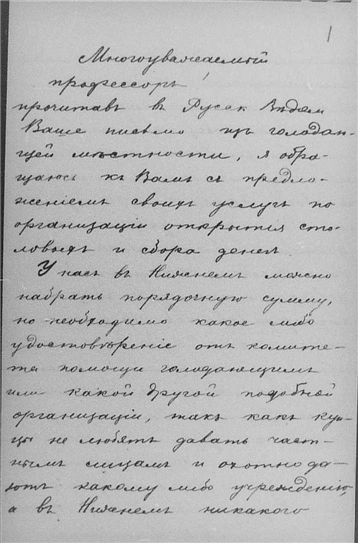 1
Многоуважаемый
профессоръ!
прочитавъ въ Русск Вѣдом
Ваше письмо изъ голодаю-
щей мѣстности, я обра-
щаюсь къ Вамъ съ предло-
женіемъ своихъ услугъ по
организаціи открытія сто-
ловыхъ и сбора денегъ.
У насъ въ Нижнемъ можно
набрать порядочную сумму,
но необходимо какое либо
удостовѣреніе отъ комите-
та помощи голодающимъ
или какой другой подобной
организаціи, такъ какъ куп-
цы не любятъ давать част-
нымъ лицамъ и охотно да-
ютъ какому либо учрежденію,
а въ Нижнемъ никакого